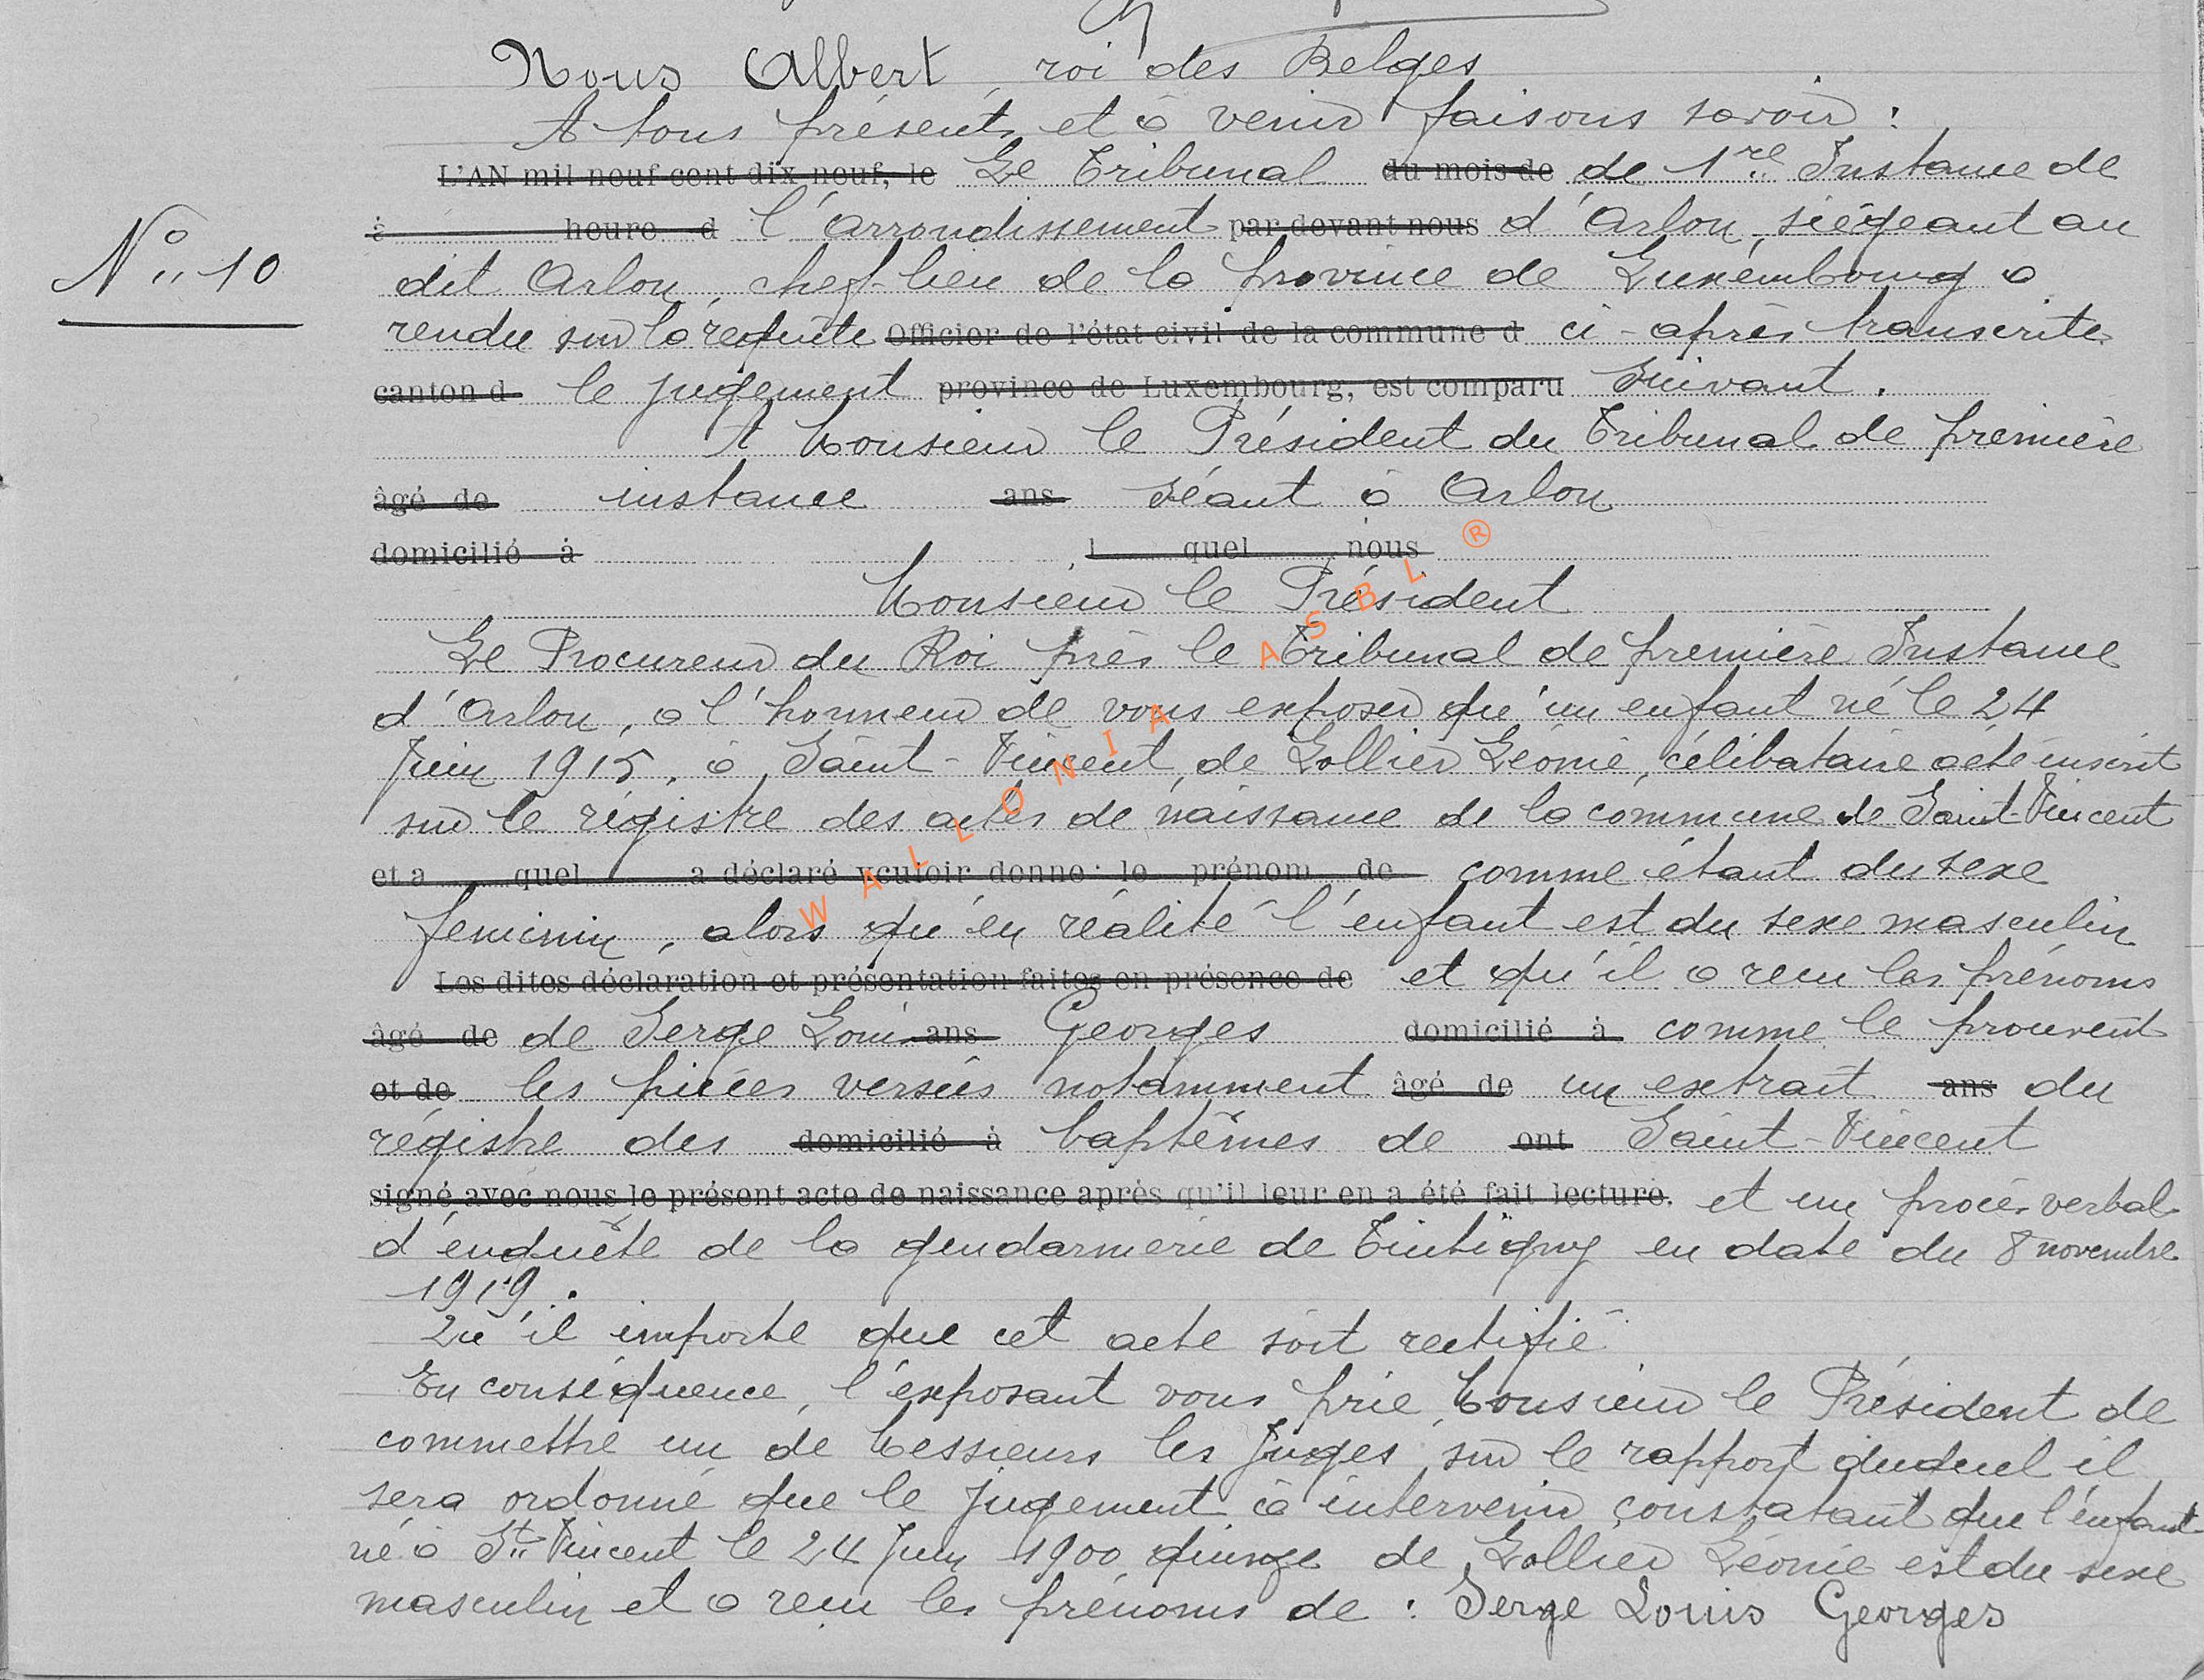 Nous Albert, roi des Belges
A tous présents et à venir faisons savoir :
L'AN mil neuf cent dix neuf, le Le Tribunal du mois de de 1re Instance de
à heure d l'arrondissement par devant nous d'Arlon, siégeant au
N° 10
dit Arlon, chef-lieu de la province de Luxembourg a
rendu sur la requête Officier de l'état civil de la commune d ci-après transcrite
canton d le jugement province de Luxembourg, est comparu suivant.
A Monsieur le Président du Tribunal de première
âgé de instance ans séant à Arlon
domicilié à l quel nous
Monsieur le Président
Le Procureur du Roi près le Tribunal de première Instance
d'Arlon, a l'honneur de vous exposer qu'un enfant né le 24
Juin 1915, à Saint-Vincent, de Lollier Léonie, célibataire a été inscrit
sur le régistre des actes de naissance de la commune de Saint-Vincent
et a quel a déclaré vouloir donner le prénom de comme étant du sexe
feminin, alors qu'en réalité l'enfant est du sexe masculin
Les dites déclaration et présentation faites en présence de et qu'il a reçu les prénoms
âgé de de Serge Louis ans Georges domicilié à comme le prouvent
et de les pièces versées notamment âgé de un extrait ans du
régistre des domicilié à baptêmes de ont Saint-Vincent
signé avec nous le présent acte de naissance après qu'il leur en a été fait lecture. et un procès verbal
d'enquête de la gendarmerie de Tintigny en date du 8 novembre
1919.
Qu'il importe que cet acte soit rectifié
En conséquence, l'exposant vous prie Monsieur le Président de
commettre un de Messieurs les Juges, sur le rapport duquel il
sera ordonné que le jugement à intervenir constatant que l'enfant
né à St Vincent le 24 Juin 1900 quinze de Lollier Léonie est du sexe
masculin et a reçu les prénoms de : Serge Louis Georges
WALLONIA ASBL ®